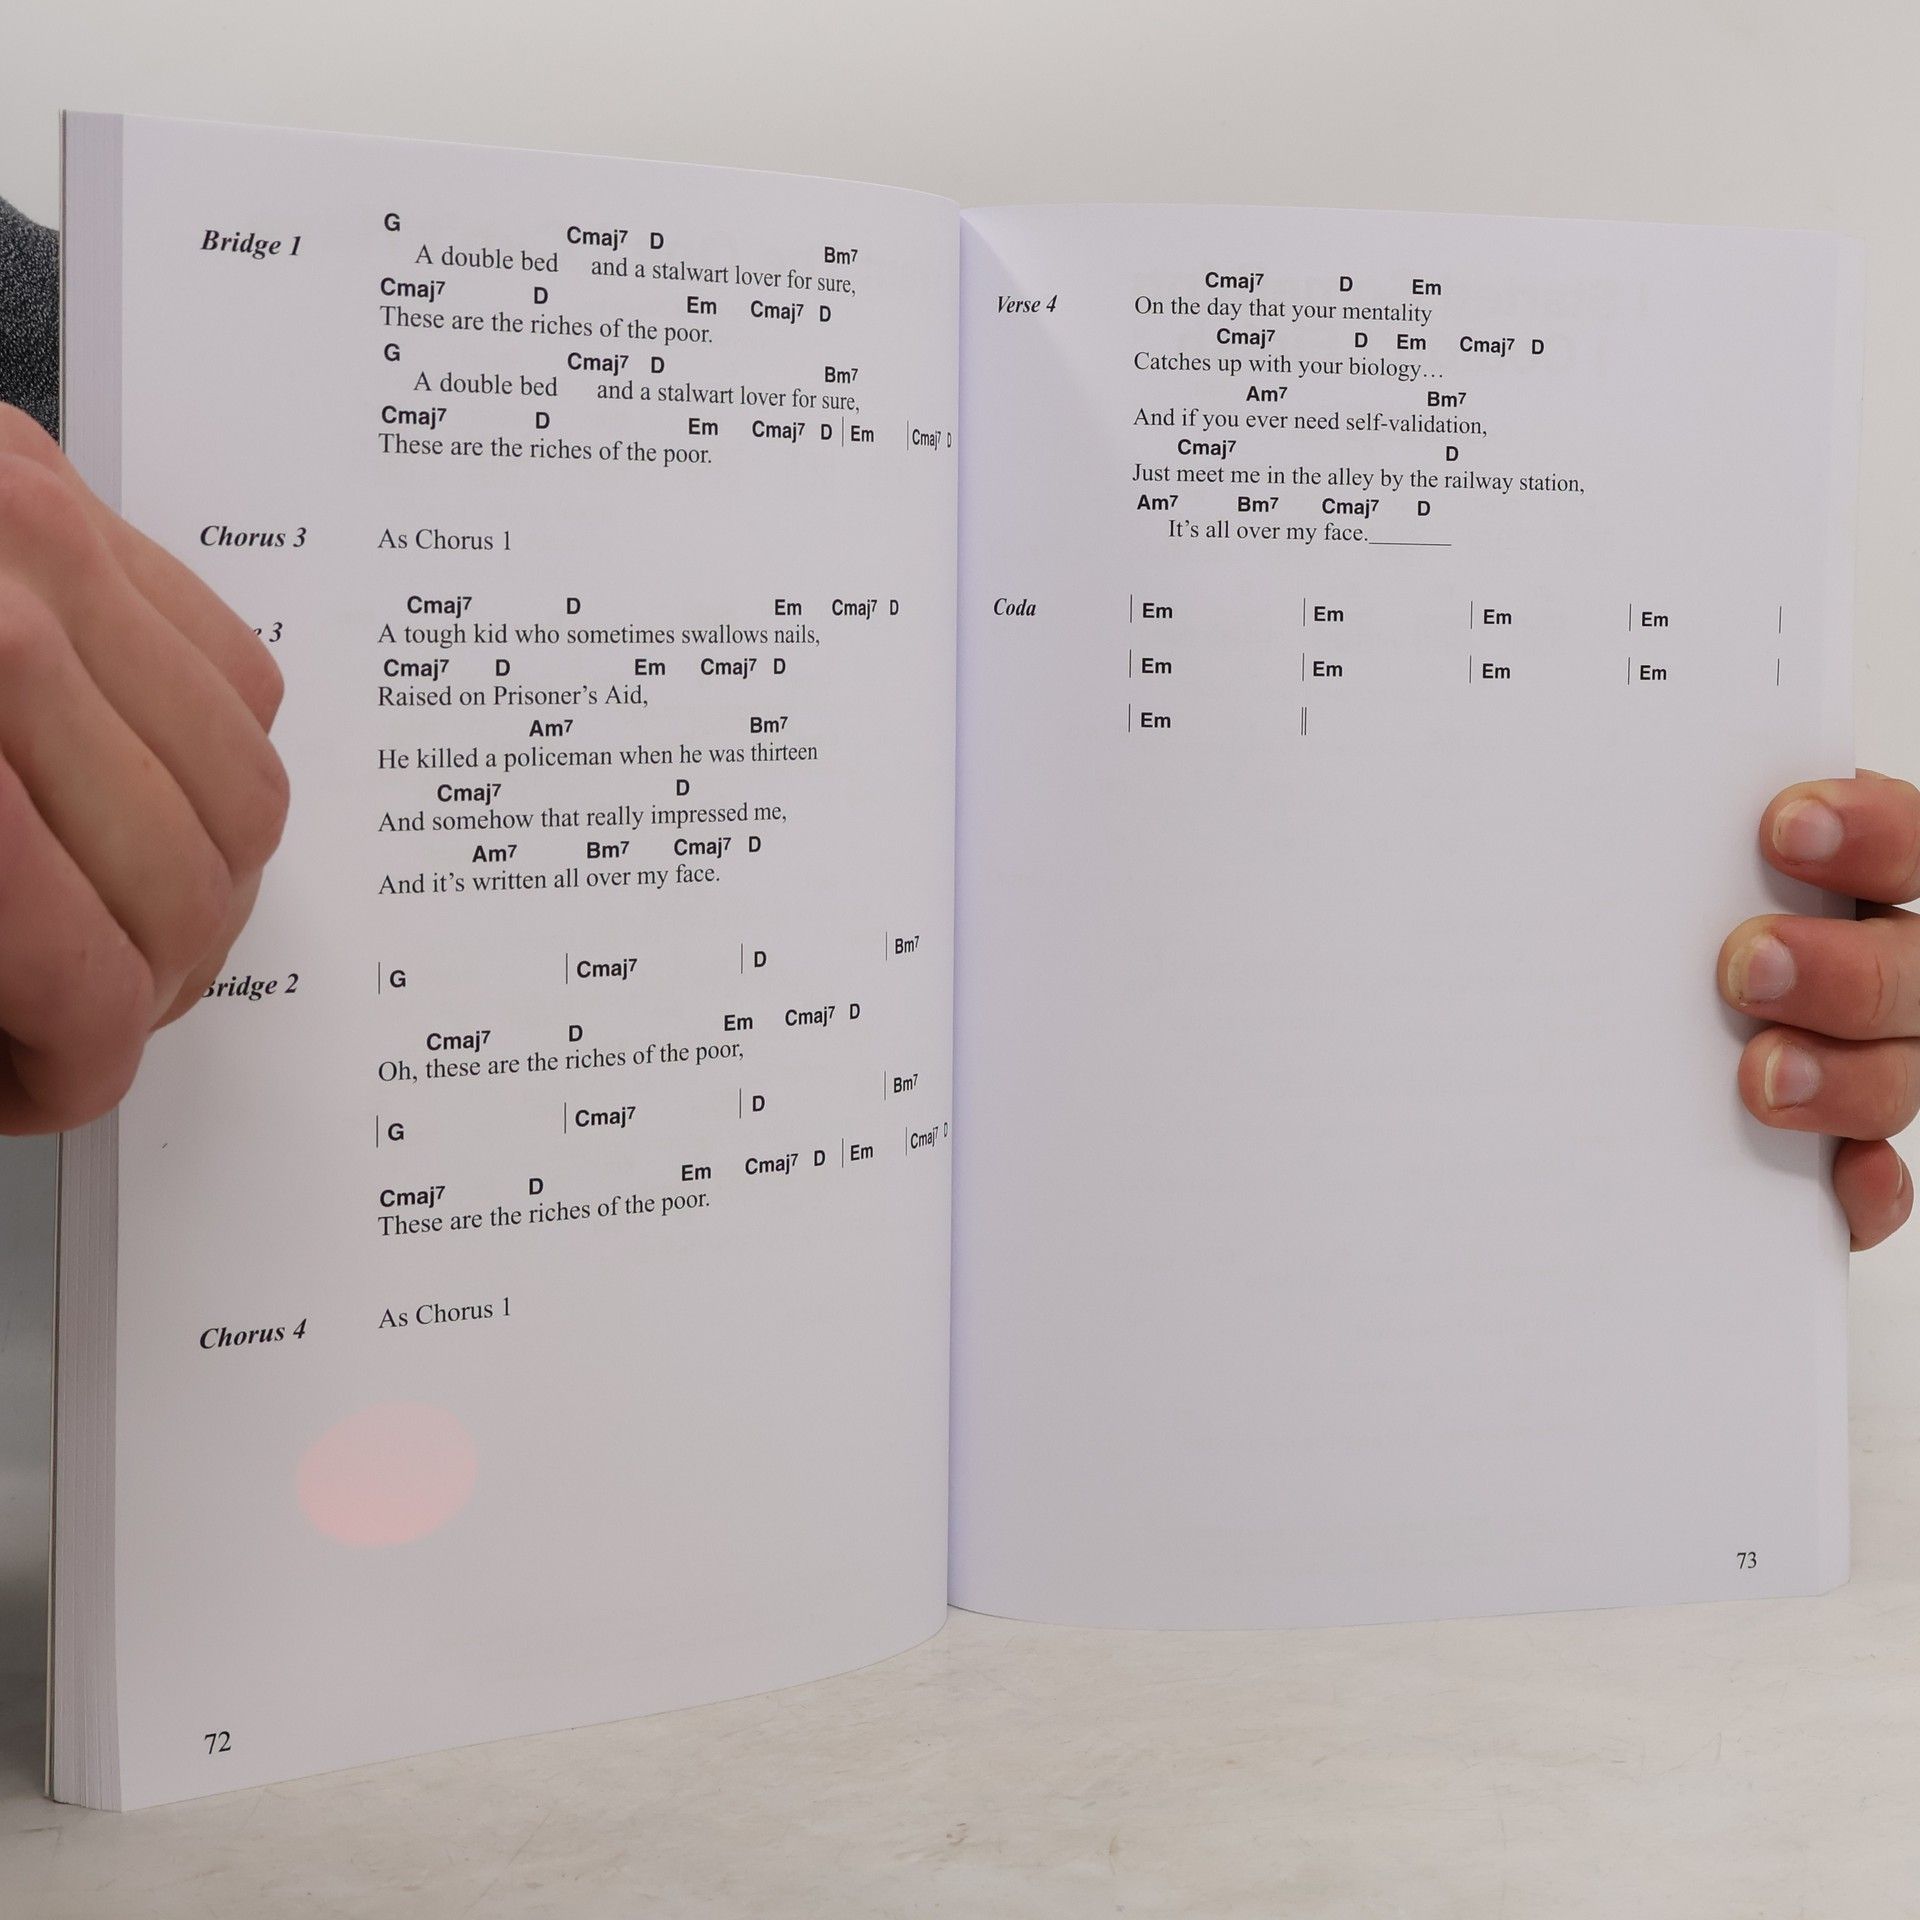 Bridge 1
G Cmaj7 D Bm7
A double bed and a stalwart lover for sure,
Cmaj7 D Em Cmaj7 D
These are the riches of the poor.
G Cmaj7 D Bm7
A double bed and a stalwart lover for sure,
Cmaj7 D Em Cmaj7 D | Em | Cmaj7 D
These are the riches of the poor.
Chorus 3 As Chorus 1
Cmaj7 D Em Cmaj7 D
3 A tough kid who sometimes swallows nails,
Cmaj7 D Em Cmaj7 D
Raised on Prisoner's Aid,
Am7 Bm7
He killed a policeman when he was thirteen
Cmaj7 D
And somehow that really impressed me,
Am7 Bm7 Cmaj7 D
And it's written all over my face.
Bridge 2 | G | Cmaj7 | D | Bm7
Cmaj7 D Em Cmaj7 D
Oh, these are the riches of the poor,
| G | Cmaj7 | D | Bm7
Cmaj7 D Em Cmaj7 D | Em | Cmaj7 D
These are the riches of the poor.
Chorus 4 As Chorus 1
72
Cmaj7 D Em
Verse 4 On the day that your mentality
Cmaj7 D Em Cmaj7 D
Catches up with your biology…
Am7 Bm7
And if you ever need self-validation,
Cmaj7 D
Just meet me in the alley by the railway station,
Am7 Bm7 Cmaj7 D
It's all over my face.______
Coda | Em | Em | Em | Em |
| Em | Em | Em | Em |
| Em ||
73